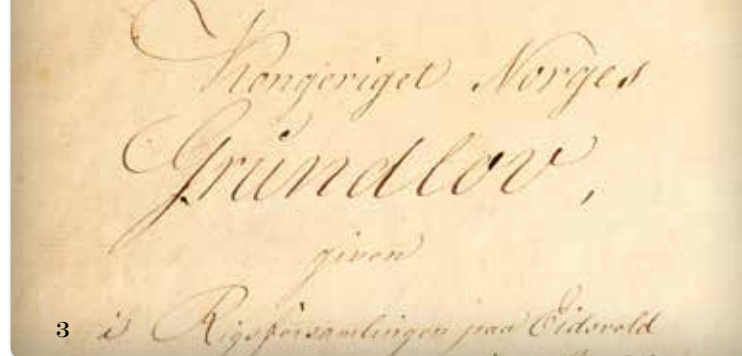 Kongeriget Norges
Grundlov,
given
3
i Rigsforsamlingen paa Eidsvold